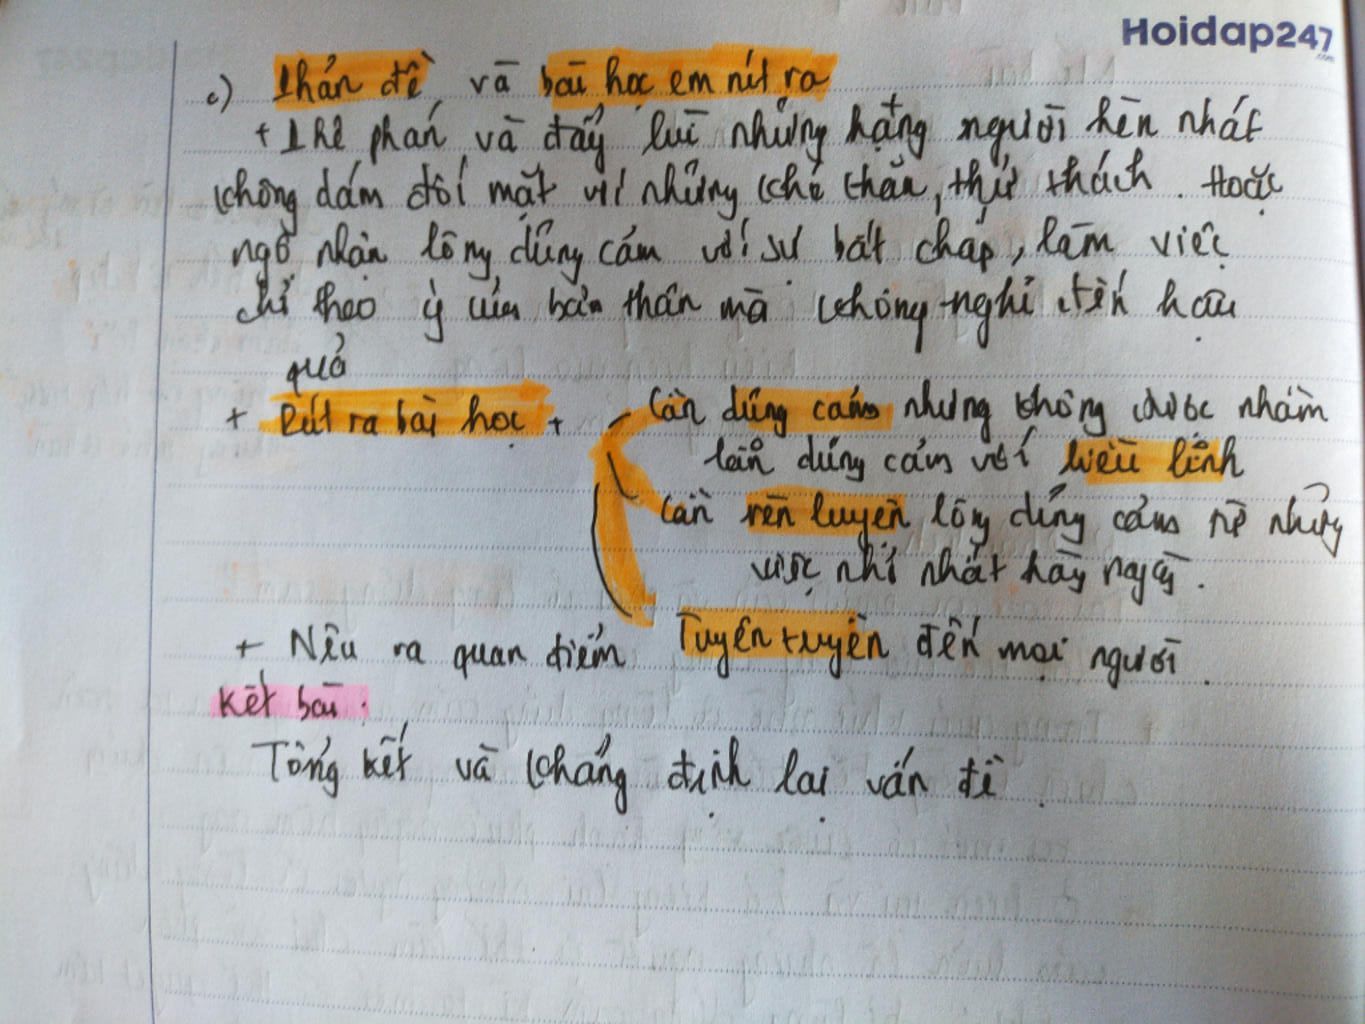 Hoidap247
.com
c) Phản đề và bài học em rút ra
+ Phê phán và đẩy lùi những hạng người hèn nhát
không dám đối mặt với những khó khăn, thử thách. Hoặc
ngộ nhận lòng dũng cảm với sự bất chấp, làm việc
chỉ theo ý của bản thân mà không nghĩ đến hậu
quả
+ Rút ra bài học + - Cần dũng cảm nhưng không được nhầm
lẫn dũng cảm với liều lĩnh
Cần rèn luyện lòng dũng cảm từ những
việc nhỏ nhất hàng ngày.
Tuyên truyền đến mọi người.
+ Nêu ra quan điểm
Kết bài.
Tổng kết và khẳng định lại vấn đề